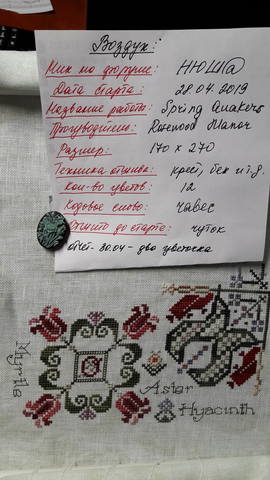 Воздух:
Ник на форуме: НЮШ@
Дата старта: 28.04.2019
Название работы: Spring Quakers
Производитель: Rosewood Manor
Размер: 170 x 270
Техника вышивки: крест, бек и т.д.
Кол-во цветов: 12
Кодовое слово: Чавес
Вышито до старта: чуток
отчёт - 30.04 - два цветоска
Myrtle
Aster
Hyacinth